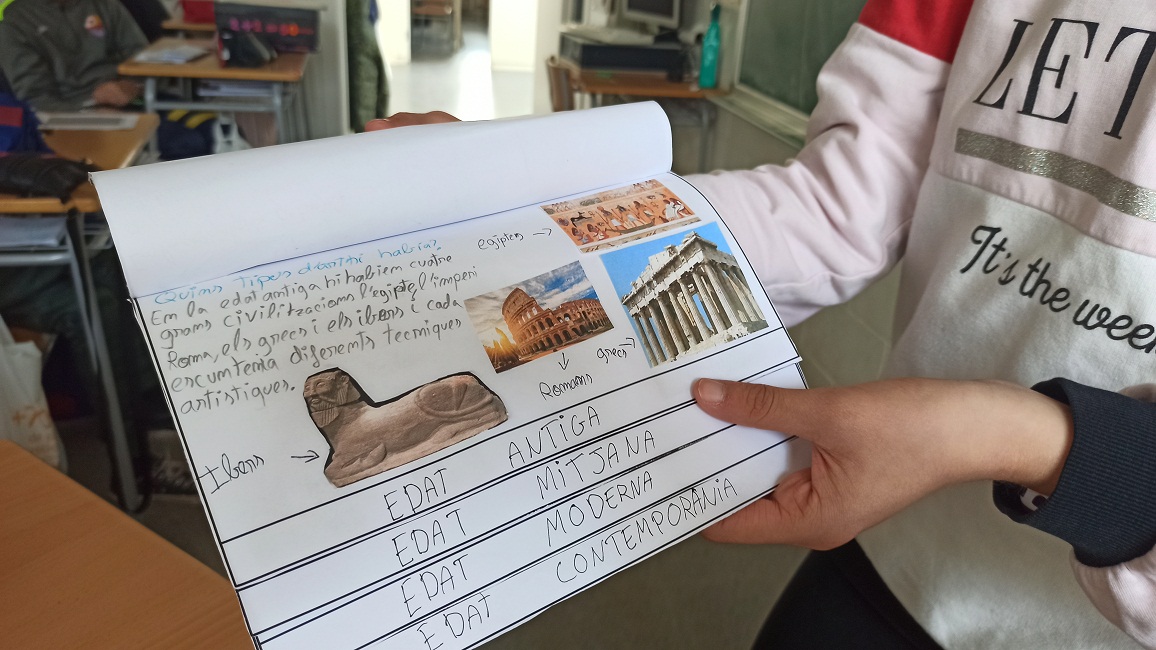 Quins tipus d'antni habia?
En la edat antiga hi habien cuatre
grans civilitzacions l'egipte, l'imperi
Roma, els grecs i els ibers i cada
escun tenia diferents tecniques
artistiques.
egiptes
Romans
grecs
Ibers
EDAT ANTIGA
EDAT MITJANA
EDAT MODERNA
EDAT CONTEMPORÀNIA
LET
It's the week